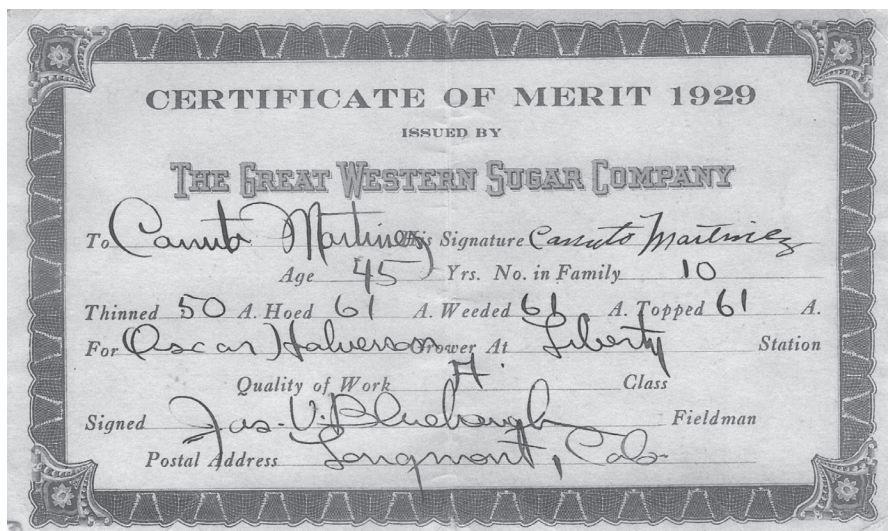 CERTIFICATE OF MERIT 1929
ISSUED BY
THE GREAT WESTERN SUGAR COMPANY
To Canuto Martinez His Signature Canuto Martinez
Age 45 Yrs. No. in Family 10
Thinned 50 A. Hoed 61 A. Weeded 61 A. Topped 61 A.
For Oscar Halverson Grower At Liberty Station
Quality of Work A. Class
Signed Jas. V. Bluebaugh Fieldman
Postal Address Longmont, Colo